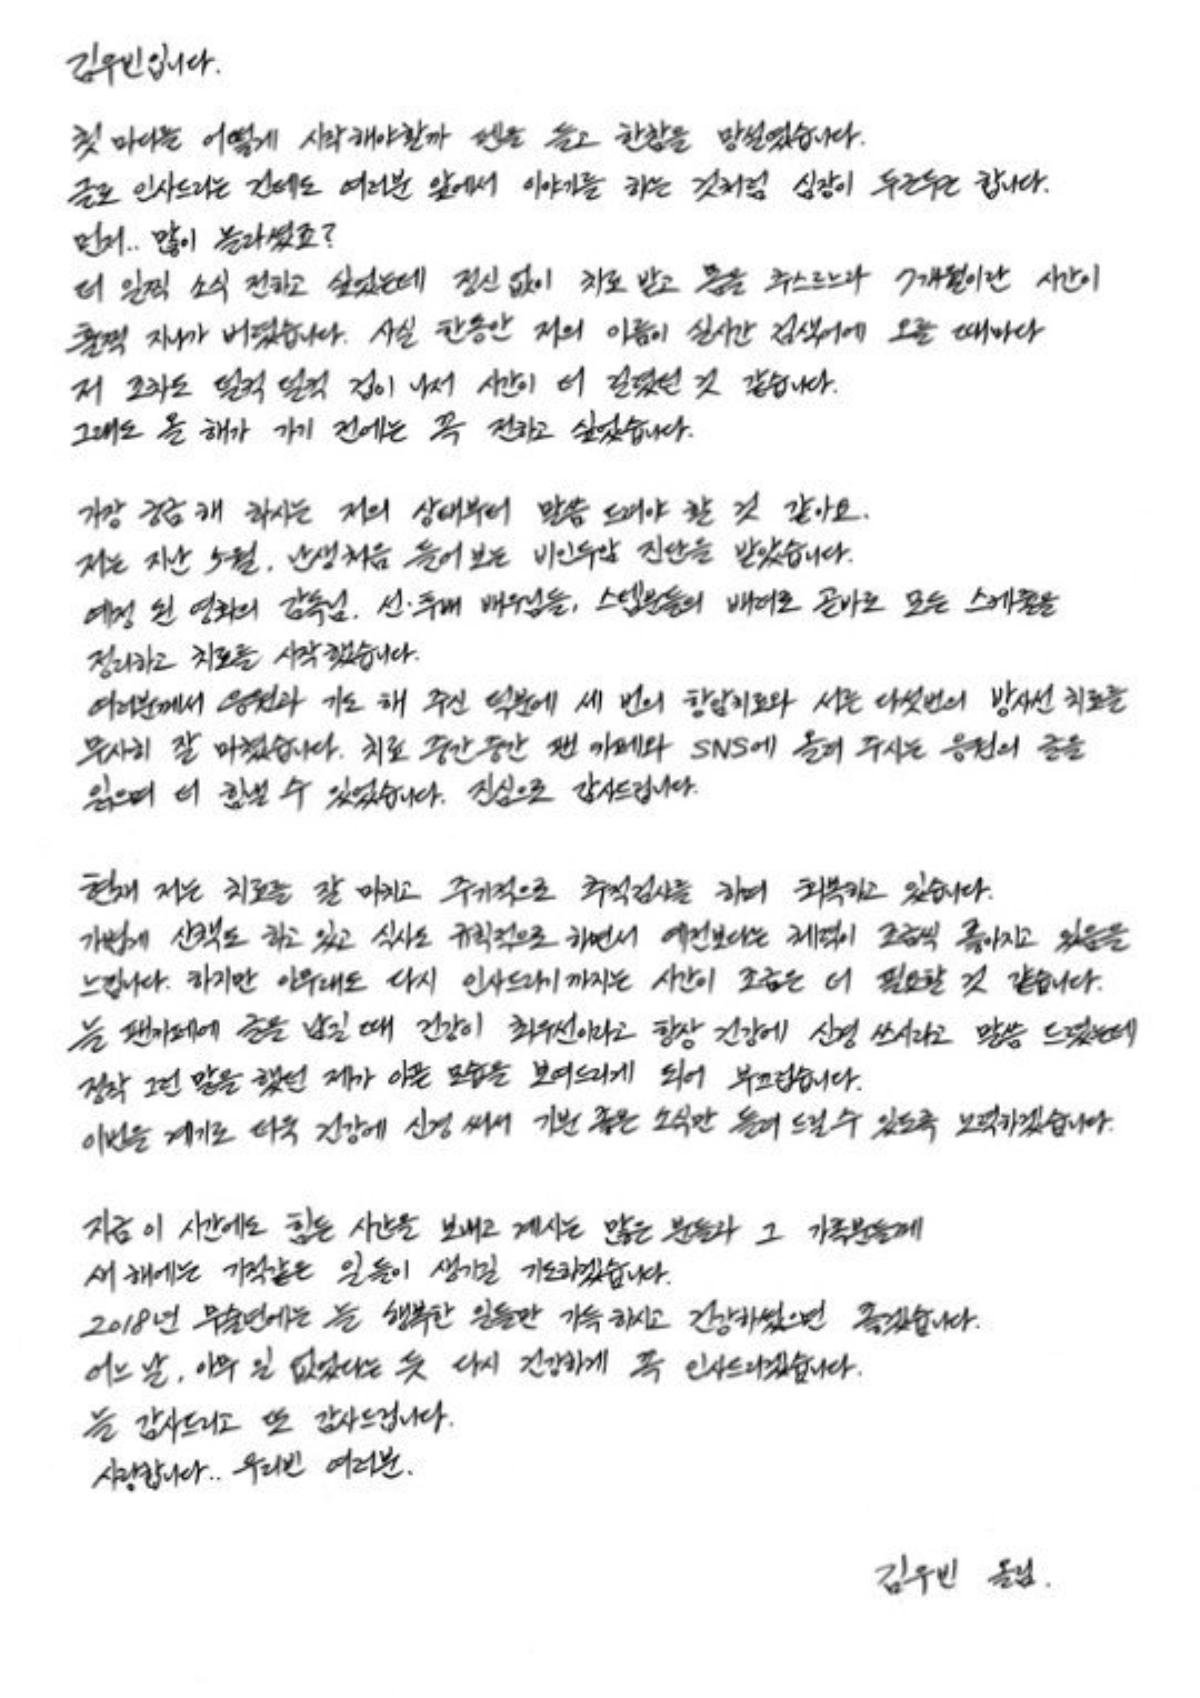 김우빈입니다.
첫 마디를 어떻게 시작해야할까 펜을 들고 한참을 망설였습니다.
글로 인사드리는 건데도 여러분 앞에서 이야기를 하는 것처럼 심장이 두근두근 합니다.
먼저.. 많이 놀라셨죠?
더 일찍 소식 전하고 싶었는데 정신 없이 치료 받고 몸을 추스르느라 7개월이란 시간이
훌쩍 지나가 버렸습니다. 사실 한동안 저의 이름이 실시간 검색어에 오를 때마다
저 조차도 덜컥 덜컥 겁이 나서 시간이 더 걸렸던 것 같습니다.
그래도 올 해가 가기 전에는 꼭 전하고 싶었습니다.
가장 궁금 해 하시는 저의 상태부터 말씀 드려야 할 것 같아요.
저는 지난 5월, 난생처음 들어 보는 비인두암 진단을 받았습니다.
예정 된 영화의 감독님, 선·후배 배우님들, 스텝분들의 배려로 곧바로 모든 스케쥴을
정리하고 치료를 시작했습니다.
여러분께서 응원과 기도 해 주신 덕분에 세 번의 항암치료와 서른 다섯번의 방사선 치료를
무사히 잘 마쳤습니다. 치료 중간 중간 팬 카페와 SNS에 올려 주시는 응원의 글을
읽으며 더 힘낼 수 있었습니다. 진심으로 감사드립니다.
현재 저는 치료를 잘 마치고 주기적으로 추적검사를 하며 회복하고 있습니다.
가볍게 산책도 하고 있고 식사도 규칙적으로 하면서 예전보다는 체력이 조금씩 좋아지고 있음을
느낍니다. 하지만 아무래도 다시 인사드리기까지는 시간이 조금은 더 필요할 것 같습니다.
늘 팬카페에 글을 남길 때 건강이 최우선이라고 항상 건강에 신경 쓰시라고 말씀 드렸는데
정작 그런 말을 했던 제가 아픈 모습을 보여드리게 되어 부끄럽습니다.
이번을 계기로 더욱 건강에 신경 써서 기분 좋은 소식만 들려 드릴 수 있도록 노력하겠습니다.
지금 이 시간에도 힘든 시간을 보내고 계시는 많은 분들과 그 가족분들께
새 해에는 기적같은 일 들이 생기길 기도하겠습니다.
2018년 무술년에는 늘 행복한 일들만 가득 하시고 건강하셨으면 좋겠습니다.
어느 날, 아무 일 없었다는 듯 다시 건강하게 꼭 인사드리겠습니다.
늘 감사드리고 또 감사드립니다.
사랑합니다.. 우리빈 여러분.
김우빈 올림.